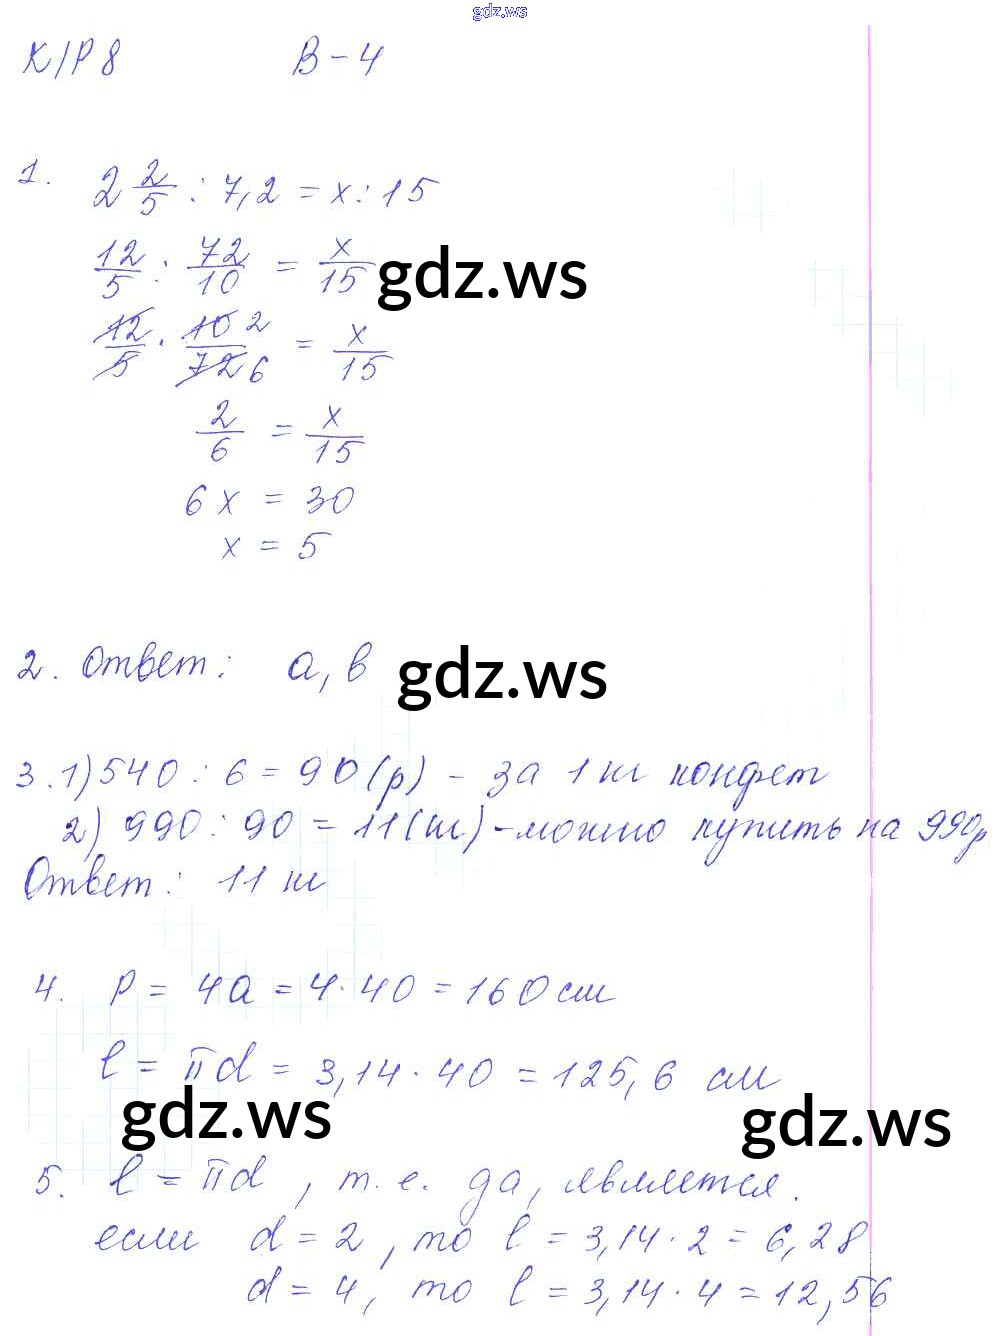 gdz.ws
К/Р 8 В-4
1. 2 2/5 : 7,2 = x : 15
12/5 : 72/10 = x/15
gdz.ws
12/5 · 10/72 2 6 = x/15
2/6 = x/15
6x = 30
x = 5
2. Ответ: а, в
gdz.ws
3. 1) 540 : 6 = 90 (р) - за 1 кг конфет
2) 990 : 90 = 11 (кг) - можно купить на 990р
Ответ: 11 кг
4. P = 4a = 4·40 = 160 см
l = πd = 3,14 · 40 = 125,6 см
gdz.ws
gdz.ws
5. l = πd, т.е. да, является.
если d = 2, то l = 3,14 · 2 = 6,28
d = 4, то l = 3,14 · 4 = 12,56